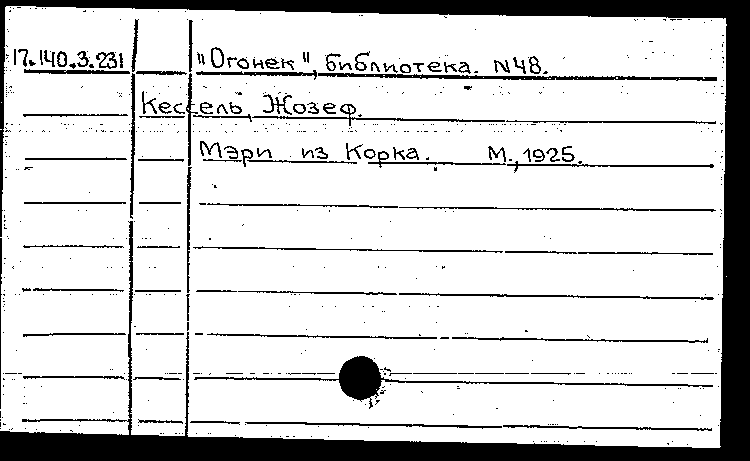 17.140.3.231 "Огонек", библиотека. N48.
Кессель, Жозеф.
Мэри из Корка. М., 1925.